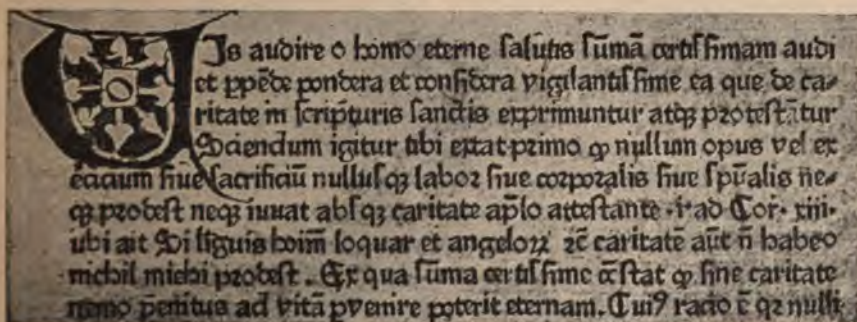 VJs audire o homo eterne salutis sūmā certissimam audi
et ꝑpēde pondera et considera vigilantissime ea que de ca⸗
ritate in scripturis sanctis exprimuntur atqꝫ protestātur
Sciendum igitur tibi extat primo ꝙ nullum opus vel ex
ecicium siue sacrificiū nullusqꝫ labor siue corporalis siue spūalis ne⸗
qꝫ prodest neqꝫ iuuat absqꝫ caritate apľo attestante · i · ad Cor · xiii ·
ubi ait Si liguis hoīm loquar et angeloꝝ ⁊c̄ caritatē aūt n̄ habeo
michil michi prodest . Ex qua sūma certissime cōstat ꝙ sine caritate
nemo penitus ad vitā pvenire poterit eternam . Cuiꝰ racio ē qꝛ nulli